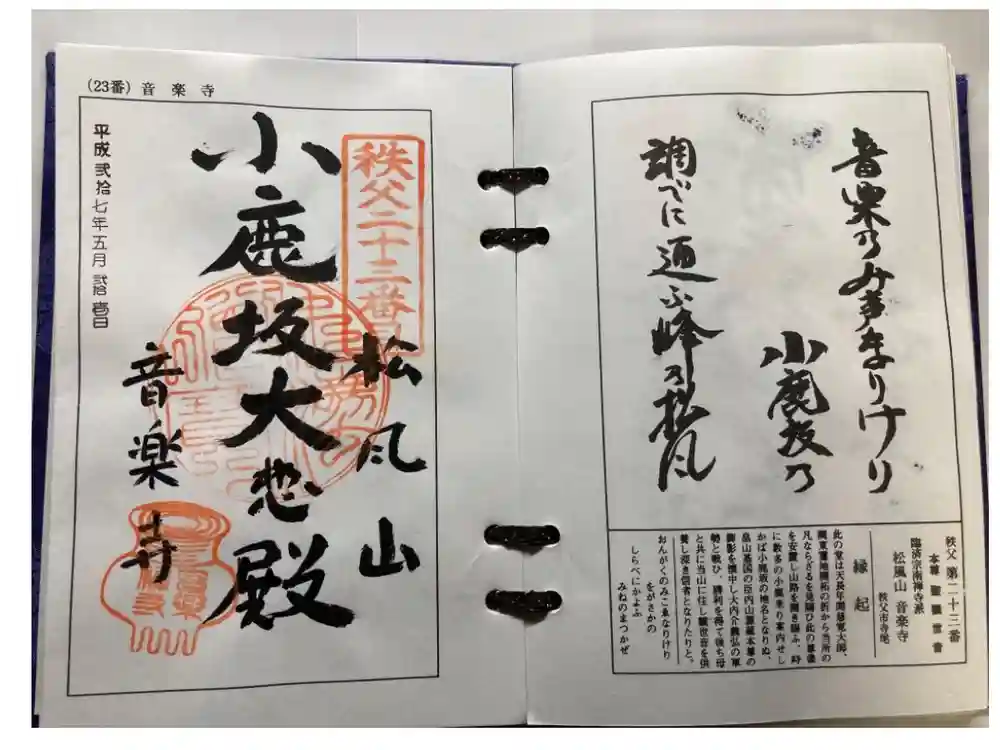 音楽のみ声なりけり
小鹿坂の
調べに通ふ峰の松風
秩父 第二十三番
本尊 聖観世音
臨済宗南禅寺派
松風山 音楽寺
秩父市寺尾
縁起
此の堂は天長年間慈覚大師、
関東霊地開拓の折から当所の
凡ならざるを見賜ひ此の尊像
を安置し山路を開き賜ふ、時
に数多の小鹿来り案内せし
かば小鹿坂の地名となりぬ、
畠山基国の臣内山源蔵本尊の
御影を懐中し大内介義弘の軍
勢と戦ひ、勝利を得て後ち母
と共に当山に住し観世音を供
養し深き信者となりたりと。
おんがくのみこゑなりけり
をがさかの
しらべにかよふ
みねのまつかぜ
(23番) 音楽寺
秩父二十三番
松風山
小鹿坂大悲殿
音楽寺
平成弐拾七年五月弐拾壱日